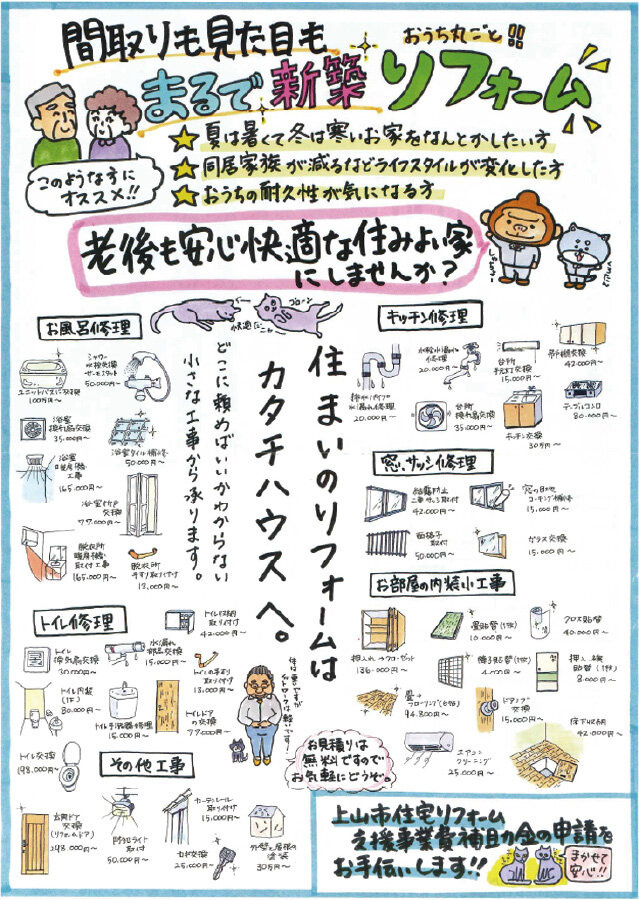 間取りも見た目も
おうち丸ごと!!
まるで新築リフォーム
このような方に
オススメ!!
夏は暑くて冬は寒いお家をなんとかしたい方
同居家族が減るなどライフスタイルが変化した方
おうちの耐久性が気になる方
老後も安心快適な住みよい家
にしませんか?
お風呂修理
ユニットバスに交換
100万円〜
シャワー
水栓交換
サーモスタット
50,000円〜
浴室
換気扇交換
35,000円〜
浴室タイル補修
50,000円〜
浴室
暖房機
工事
165,000円〜
浴室ドア
交換
77,000円〜
脱衣所
暖房機
取付工事
165,000円〜
脱衣所
手すり取り付け
13,000円〜
快適だニャ
ゴローン
住まいのリフォームは
カタチハウスへ。
どこに頼めばいいかわからない
小さな工事から承ります。
キッチン修理
排水パイプ
水漏れ修理
20,000円〜
水栓水漏れ
修理
20,000円〜
台所
手元灯交換
15,000円〜
吊戸棚交換
42,000円〜
台所
換気扇交換
35,000円〜
キッチン交換
30万円〜
テーブルコンロ
80,000円〜
窓、サッシ修理
結露防止
二重サッシ取付
42,000円〜
窓の目地
コーキング補修
15,000円〜
面格子
取付
50,000円〜
ガラス交換
15,000円〜
お部屋の内装小工事
押入れ→クローゼット
136,000円〜
畳貼替(1枚)
10,000円〜
クロス貼替
40,000円〜
障子貼替(1枚)
押入 襖
貼替(1枚)
8,000円〜
畳→
フローリング(6帖)
94,300円〜
ドアノブ
交換
15,000円〜
床下収納
42,000円〜
エアコン
クリーニング
25,000円〜
トイレ修理
トイレ
換気扇交換
30,000円〜
水漏れ
部品交換
15,000円〜
トイレ収納
取り付け
42,000円〜
トイレ内装
(1F)
80,000円〜
トイレ手洗器修理
15,000円〜
トイレの手すり
取り付け
13,000円〜
トイレドア
の交換
77,000円〜
トイレ交換
198,000円〜
体は重いですが
フットワークは軽いです!
お見積りは
無料ですので
お気軽にどうぞ。
その他工事
玄関ドア
交換
(リフォームドア)
298,000円〜
防犯ライト
取付
50,000円〜
カーテンレール
取り付け
15,000円〜
カギ交換
25,000円〜
外壁と屋根の
塗装
30万円〜
上山市住宅リフォーム
支援事業費補助金の申請を
お手伝いします!!
まかせて
安心!!